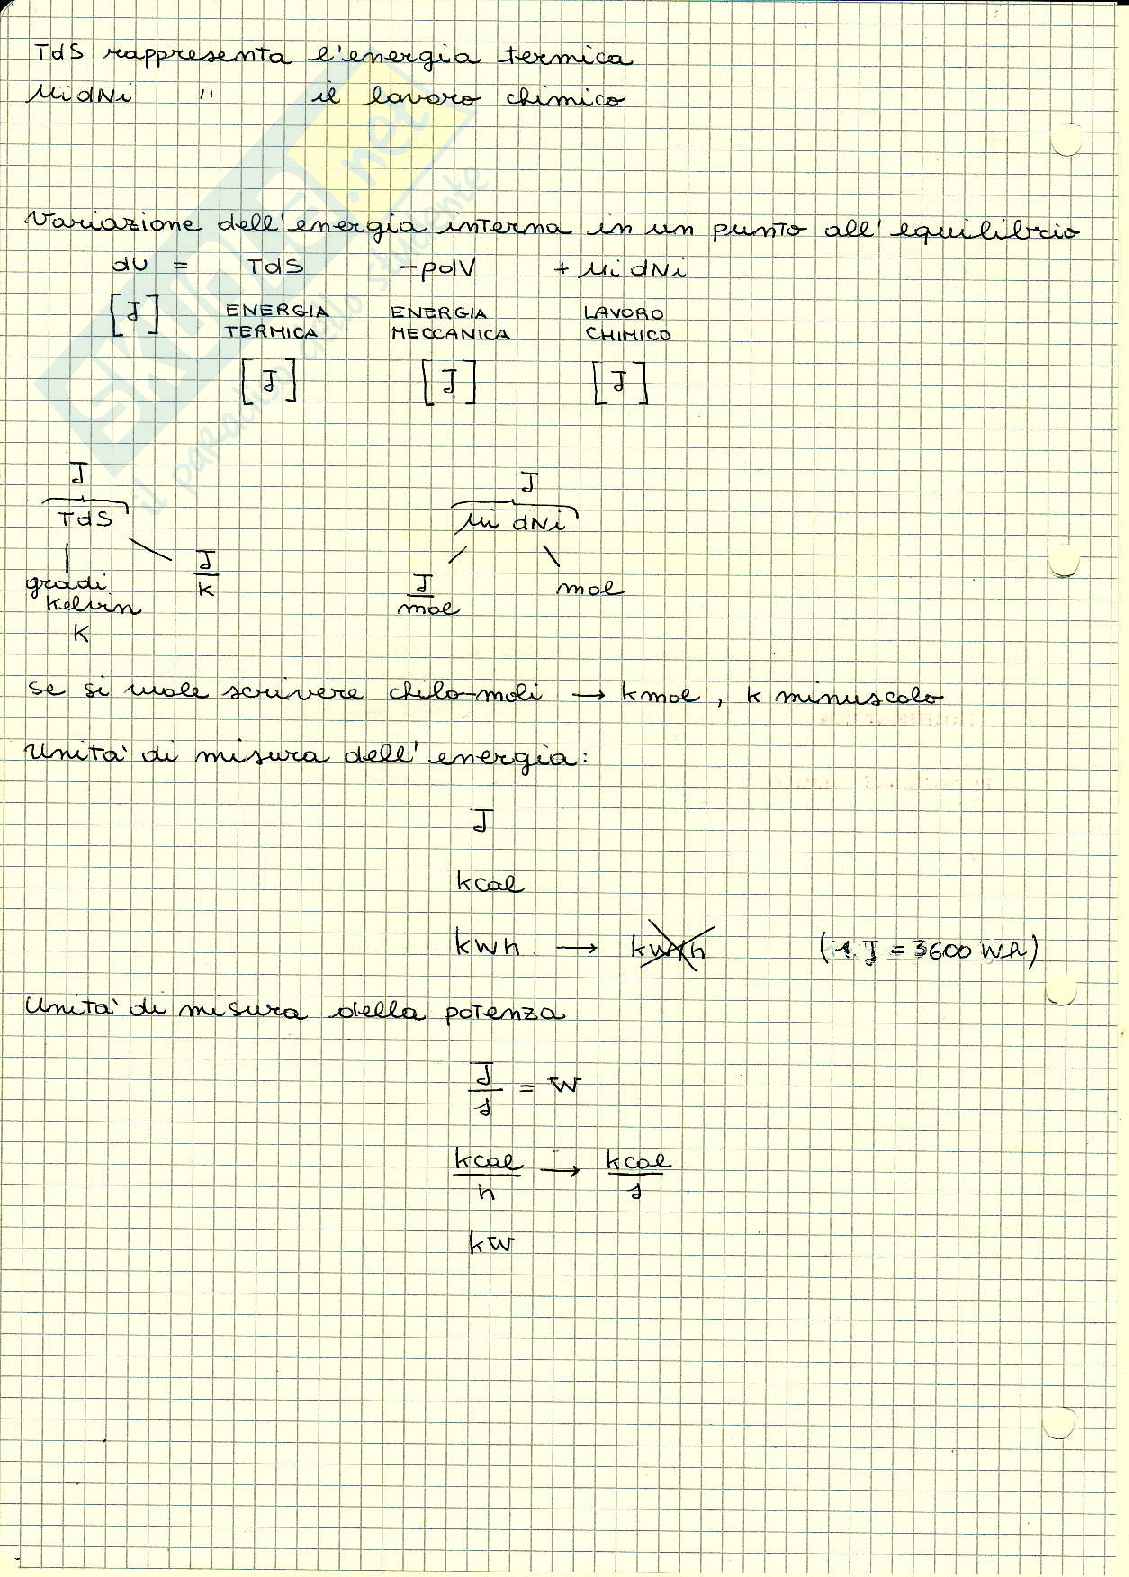 TdS rappresenta l'energia termica
μidNi " il lavoro chimico
Variazione dell'energia interna in un punto all'equilibrio
dU = TdS -pdV + μi dNi
[J] ENERGIA TERMICA ENERGIA MECCANICA LAVORO CHIMICO
[J] [J] [J]
J
TdS
gradi kelvin K
J/K
J
μi dNi
J/mol
mol
se si vuole scrivere chilo-moli → kmol, k minuscolo
Unità di misura dell'energia:
J
kcal
kwh → (1 J = 3600 Wh)
Unità di misura della potenza
J/s = W
kcal/h → kcal/s
kW
SKUOLA.net
il paradiso dello studente